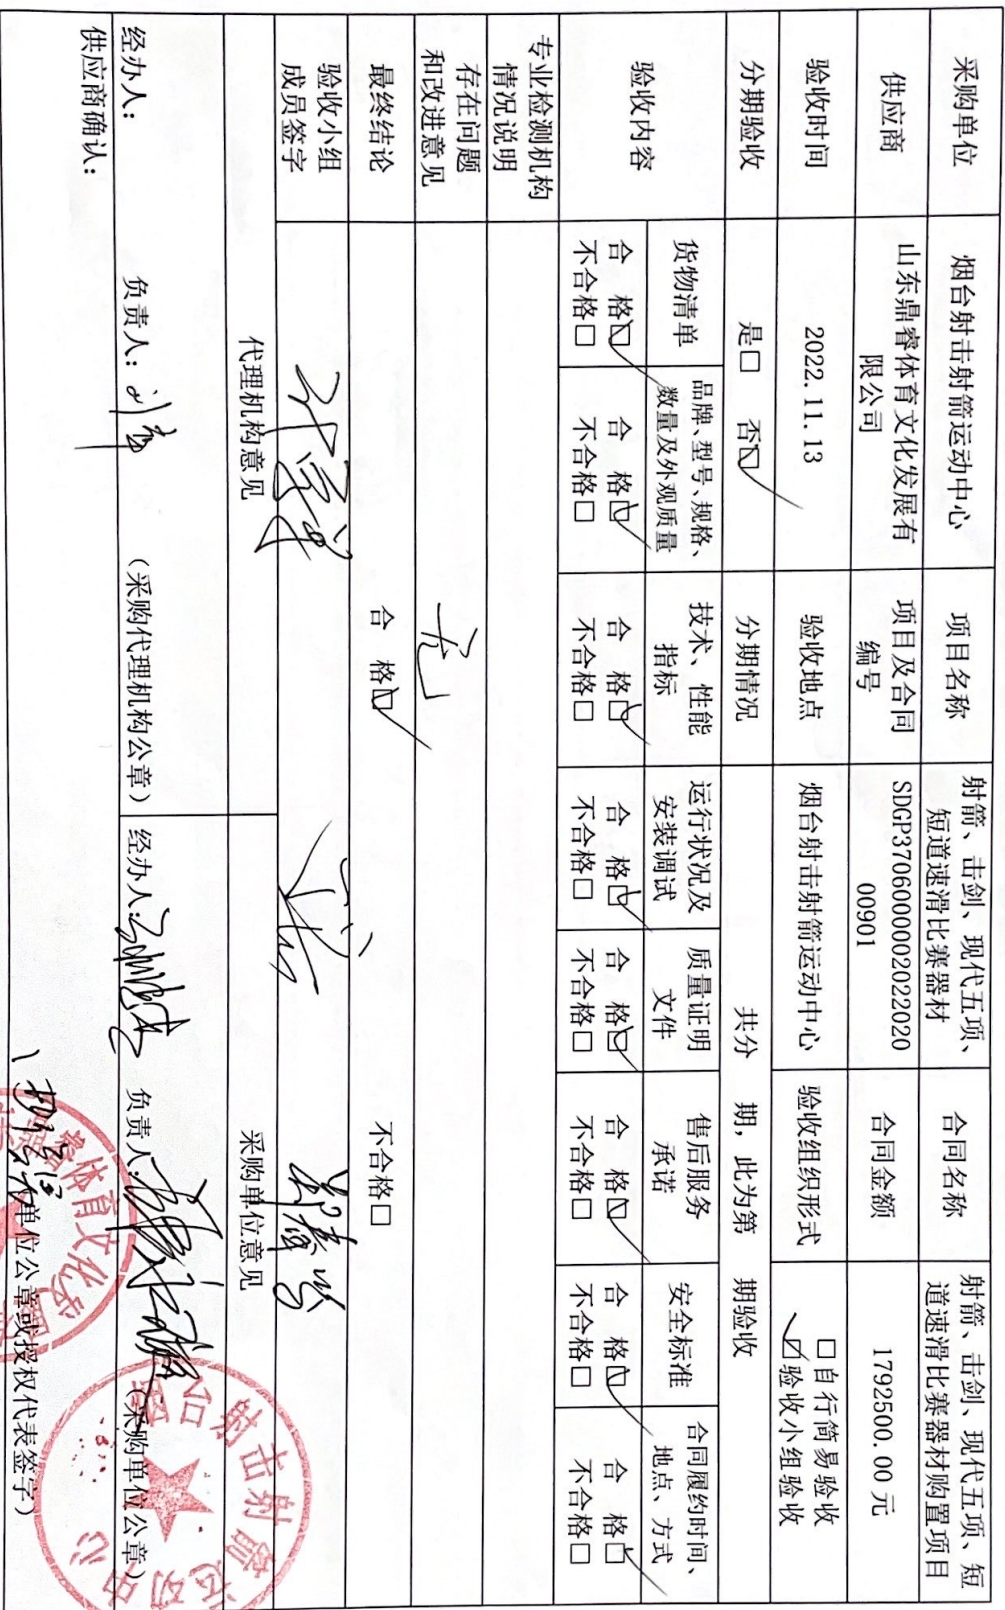 采购单位
烟台射击射箭运动中心
项目名称
射箭、击剑、现代五项、
短道速滑比赛器材
合同名称
射箭、击剑、现代五项、短
道速滑比赛器材购置项目
供应商
山东鼎睿体育文化发展有
限公司
项目及合同
编号
SDGP370600000202202000901
合同金额
17925000.00 元
验收时间
2022.11.13
验收地点
烟台射击射箭运动中心
验收组织形式
□自行简易验收
☑验收小组验收
分期验收
是□ 否☑
分期情况
共分 期，此为第 期验收
验收内容
货物清单
品牌、型号、规格、
数量及外观质量
技术、性能
指标
运行状况及
安装调试
质量证明
文件
售后服务
承诺
安全标准
合同履约时间、
地点、方式
合 格☑
不合格□
合 格☑
不合格□
合 格☑
不合格□
合 格☑
不合格□
合 格☑
不合格□
合 格☑
不合格□
合 格☑
不合格□
合 格☑
不合格□
专业检测机构
情况说明
存在问题
和改进意见
无
最终结论
合 格☑
不合格□
验收小组
成员签字
代理机构意见
采购单位意见
经办人：
负责人：
（采购代理机构公章）
经办人：
负责人：
（采购单位公章）
供应商确认：
单位公章或授权代表签字）